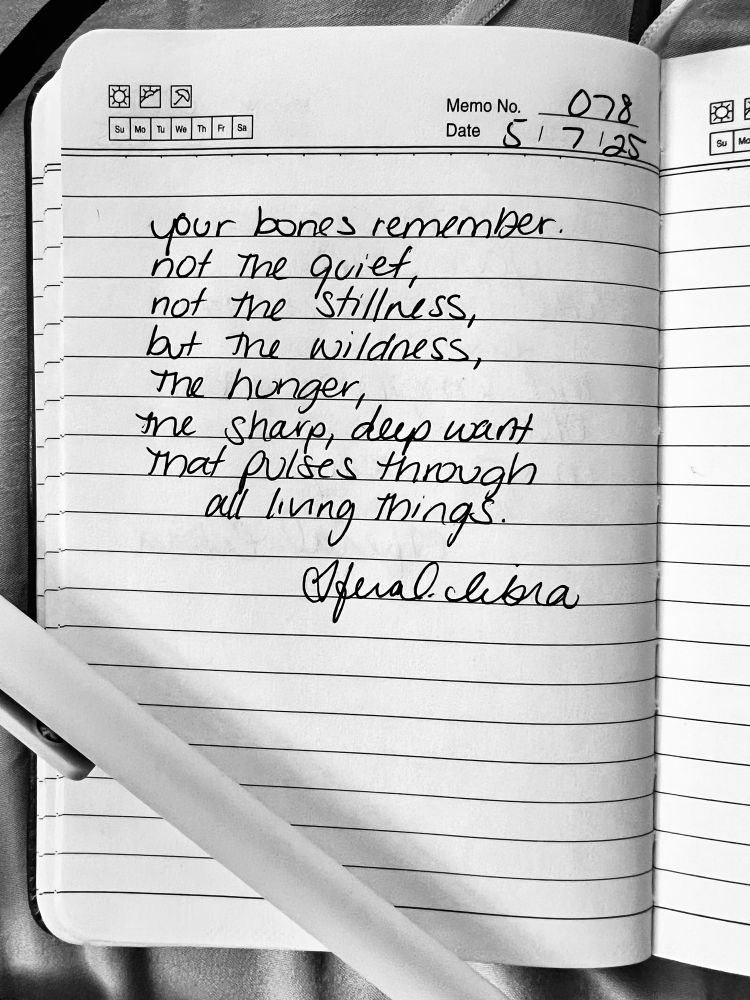 Memo No. 078
Date 5/7/25
Su Mo Tu We Th Fr Sa
your bones remember.
not the quiet,
not the stillness,
but the wildness,
the hunger,
the sharp, deep want
that pulses through
all living things.
@feral.libra
Su